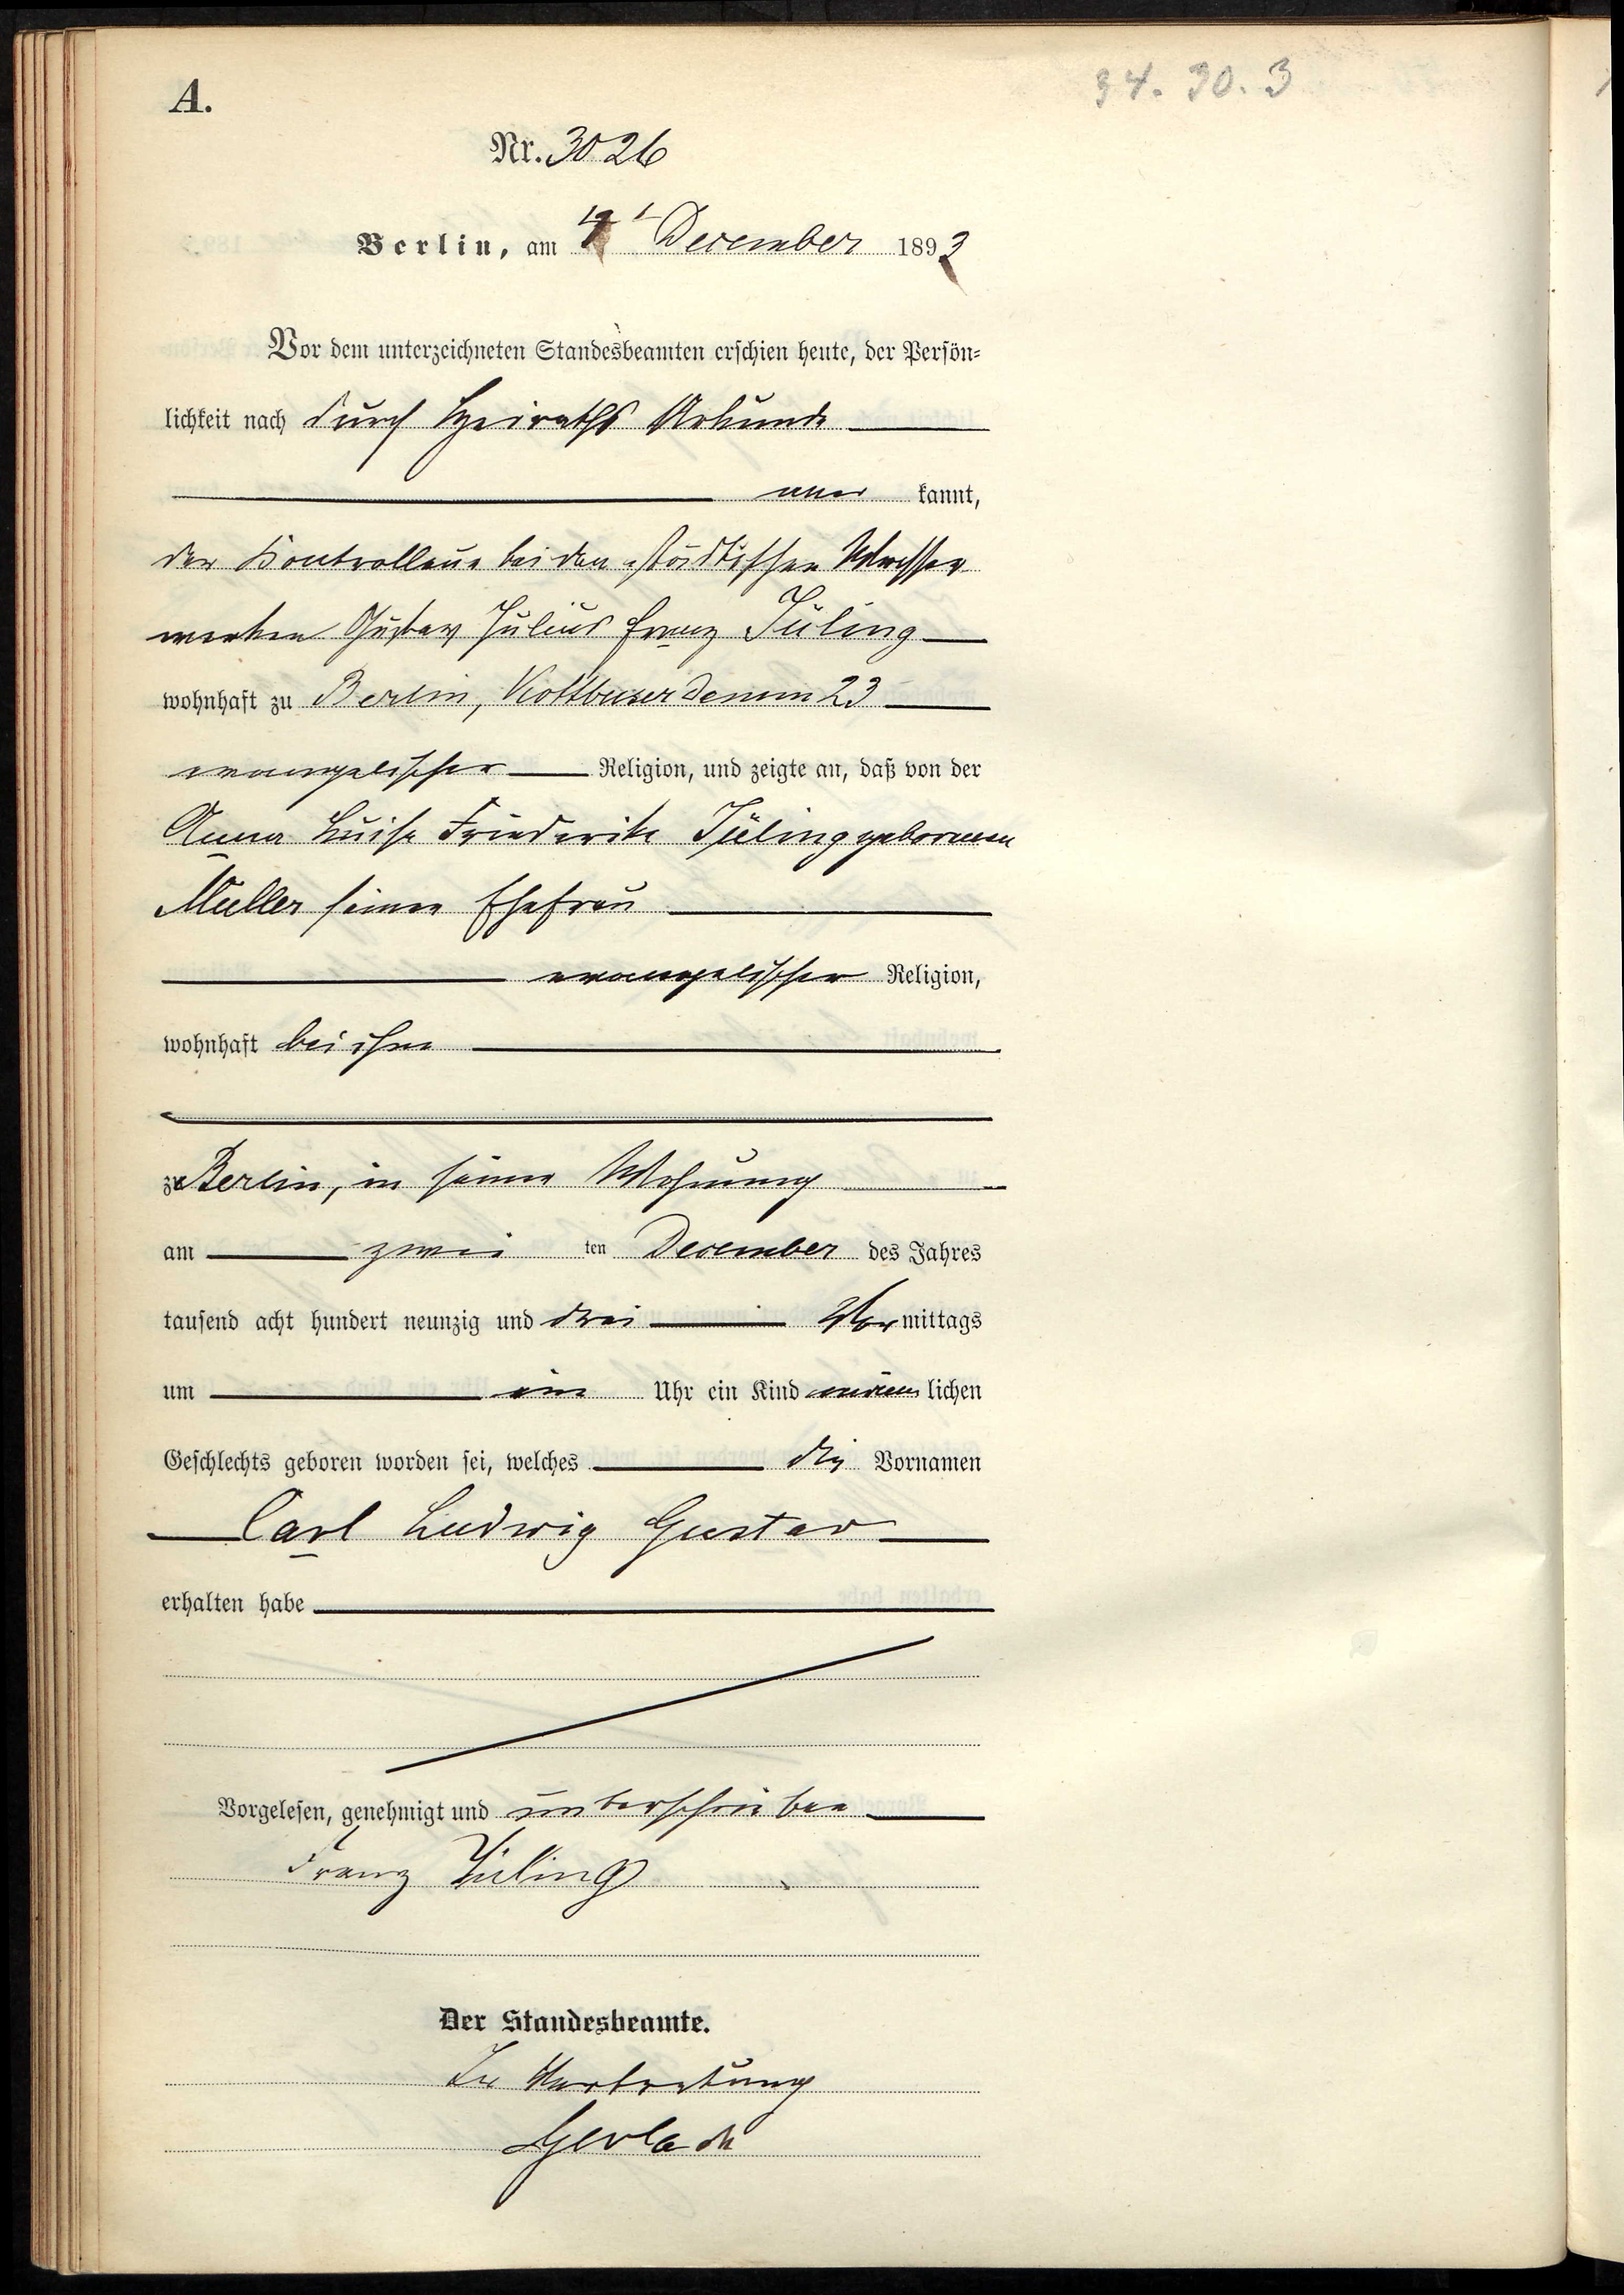 A.
34. 30. 3
Nr. 3026
Berlin, am 4t December 1893
Vor dem unterzeichneten Standesbeamten erschien heute, der Persön-
lichkeit nach durch Heiraths Urkunde
aner kannt,
der Kontrolleur bei den städtischen Wasser
werken Gustav Julius Franz Jüling
wohnhaft zu Berlin, Kottbuserdamm 23
evangelischer Religion, und zeigte an, daß von der
Anna Luise Friederike Jüling geborenen
Müller seiner Ehefrau
evangelischer Religion,
wohnhaft bei ihm
zu Berlin, in seiner Wohnung
am zwei ten December des Jahres
tausend acht hundert neunzig und drei Vor mittags
um ein Uhr ein Kind männ lichen
Geschlechts geboren worden sei, welches die Vornamen
Carl Ludwig Gustav
erhalten habe
Vorgelesen, genehmigt und unterschrieben
Franz Jüling
Der Standesbeamte.
In Vertretung
Gerlach